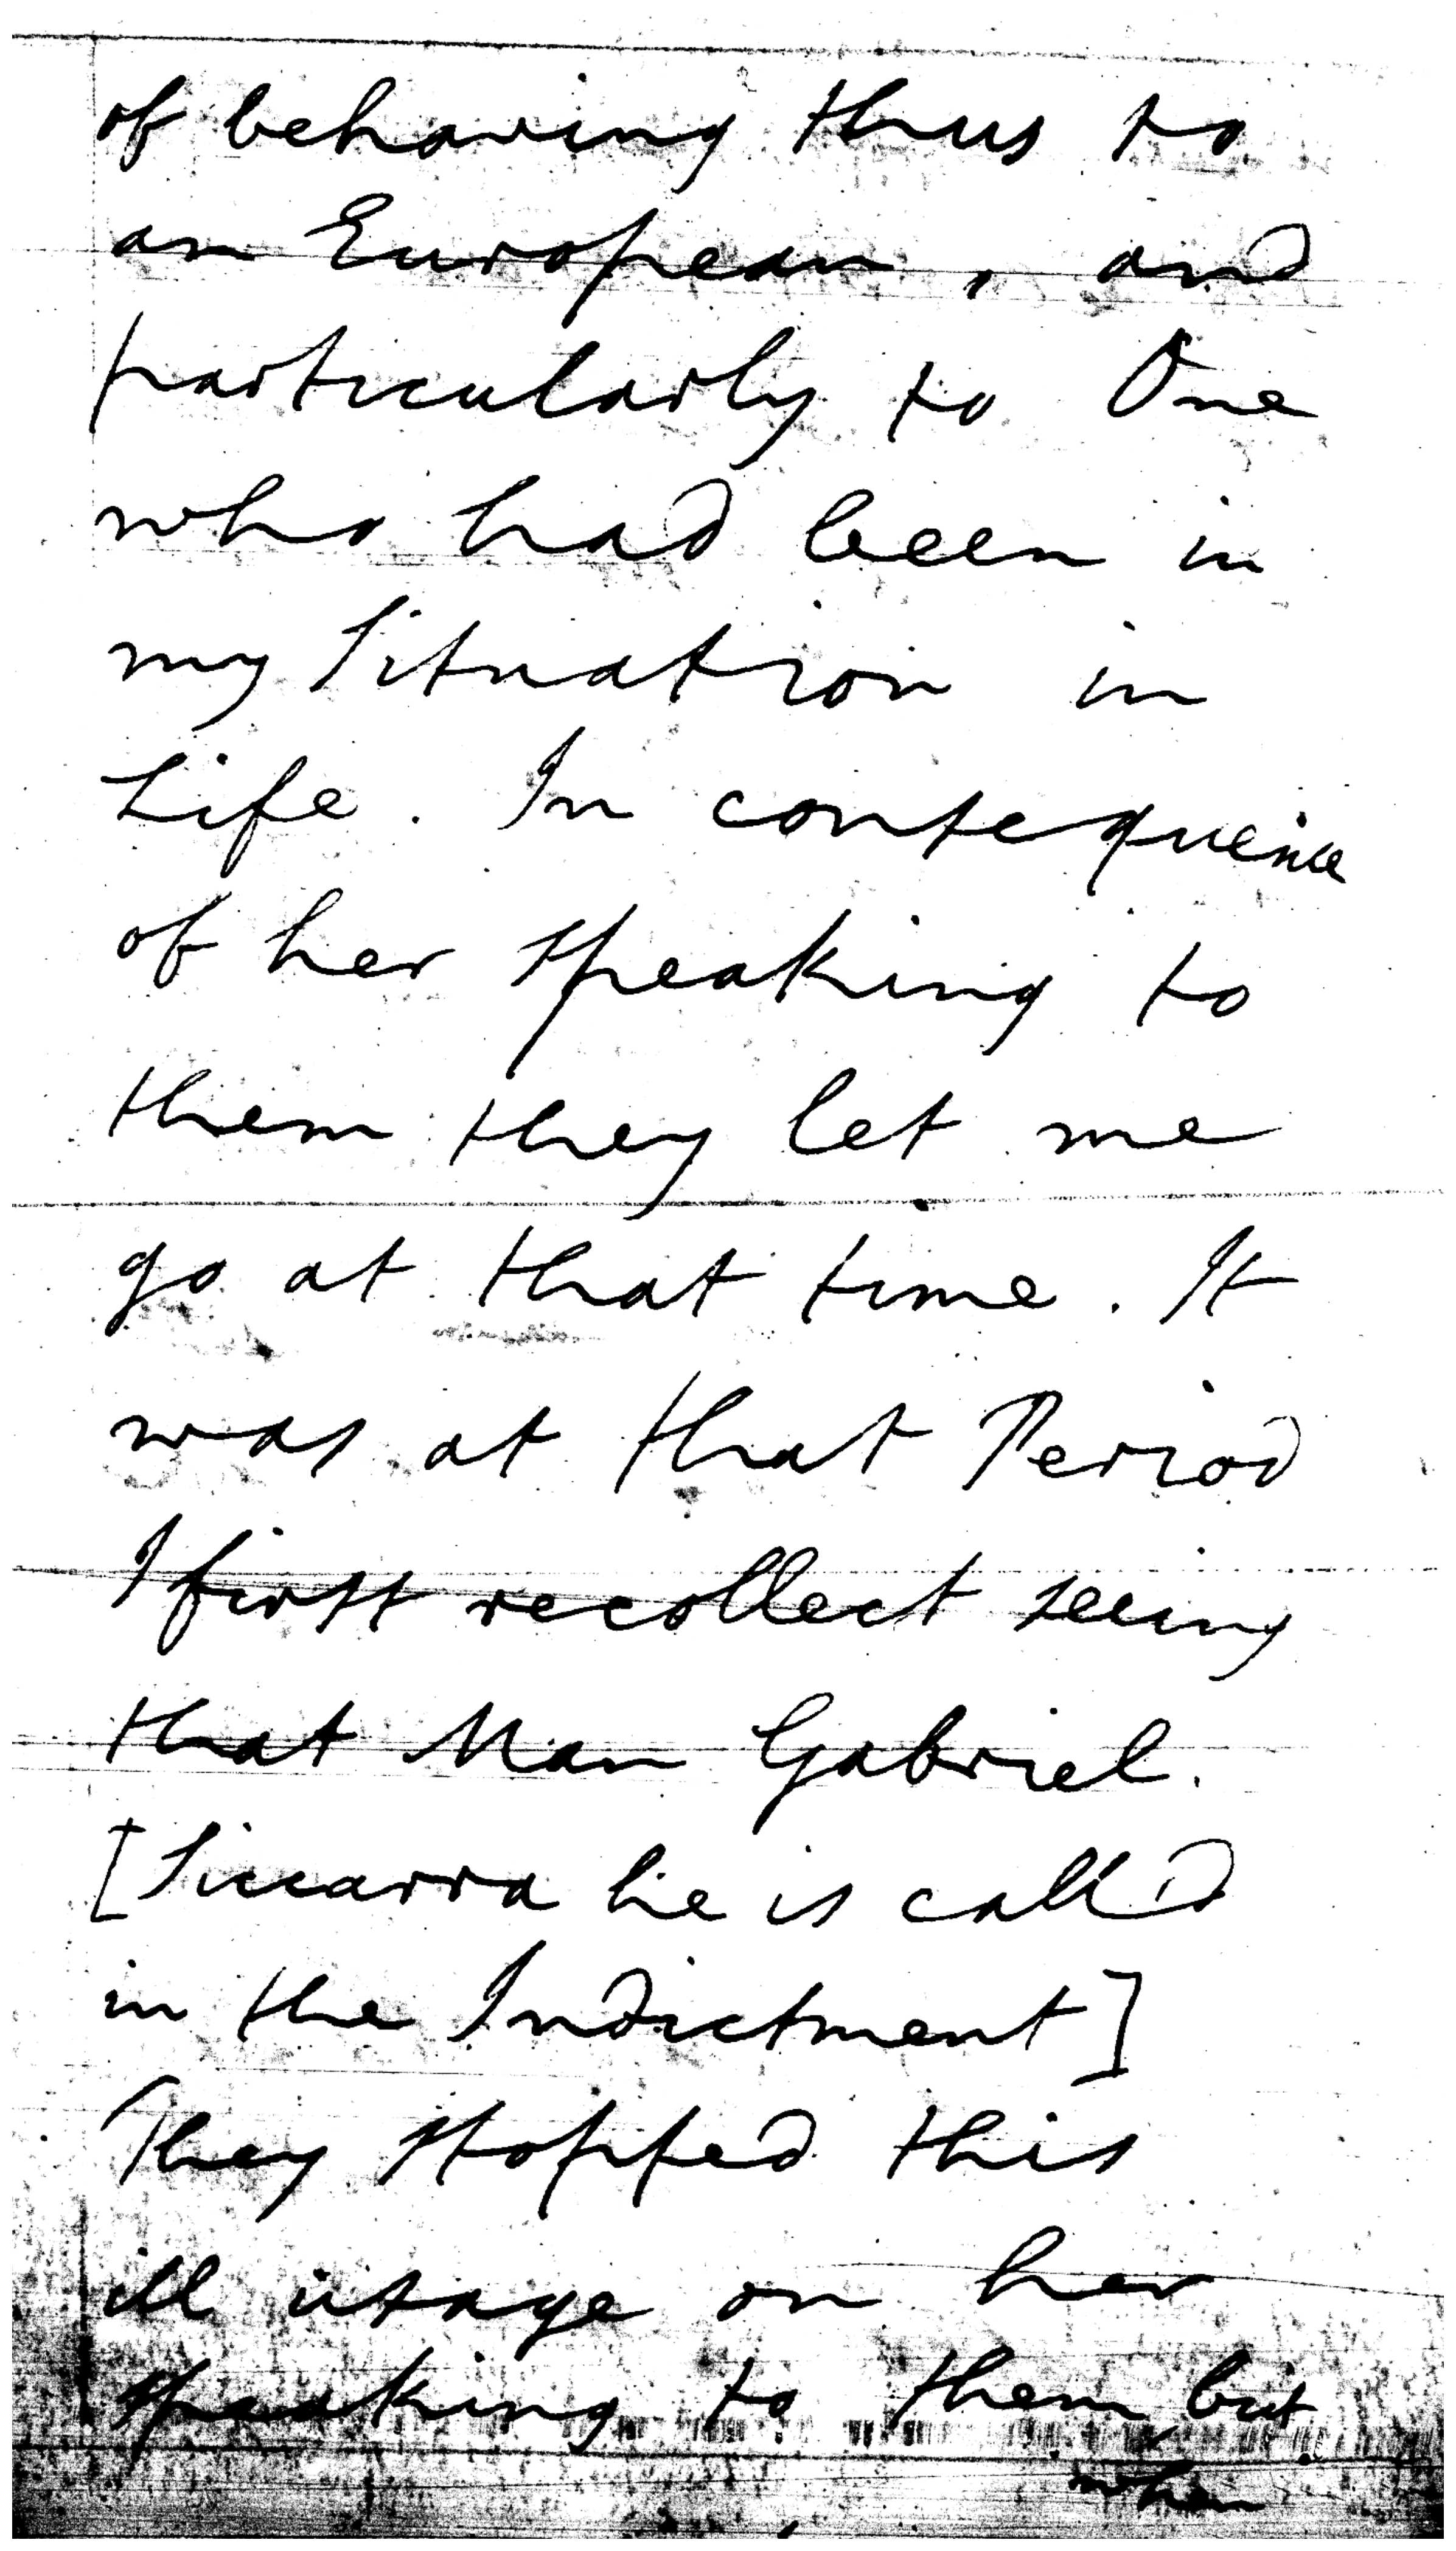 of behaving thus to
an European, and
particularly to One
who had been in
my Situation in
Life. In consequence
of her speaking to
them they let me
go at that time. It
was at that Period
I first recollect seeing
that Man Gabriel.
[Siccarra he is call'd
in the Indictment]
They stopped this
ill usage on her
speaking to them but
when